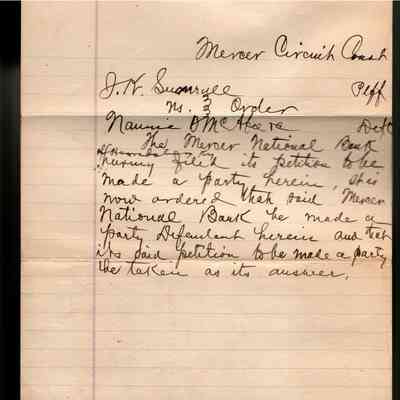 Mercer Circuit Court
J. W. Sumrall Plff
vs. Order
Nannie D McAfee Deft
The Mercer National Bank
of Harrodsburg
having filed its petition to be
made a party herein, It is
now ordered that said Mercer
National Bank be made a
party Defendant herein and that
its said petition to be made a party
be taken as its answer.